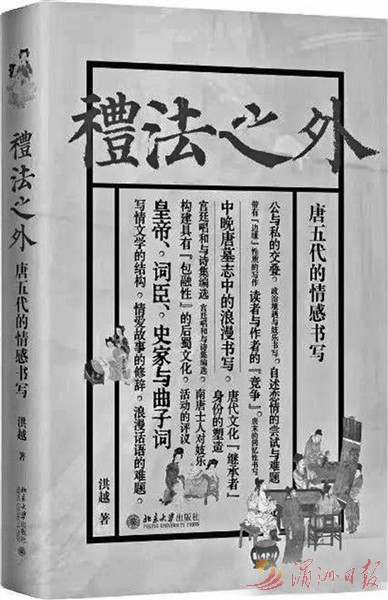 禮法之外
唐五代的情感书写
公与私的交叠。政治境遇与妓乐书写。自述恋情的尝试与难题
带有『边缘』性质的写作 读者与作者的『竞争』。唐末的回忆性书写
中晚唐墓志中的浪漫书写。
唐代文化『继承者』
身份的塑造
宫廷唱和与诗集编选 宫廷唱和与诗集编选。
南唐士人对妓乐
活动的评议
构建具有『包融性』的后蜀文化。
皇帝、词臣、史家与曲子词
写情文学的结构。情爱故事的修辞。浪漫话语的难题。
洪越 著
北京大学出版社
PEKING UNIVERSITY PRESS
禮法之外
唐五代的情感书写
洪越 著
北京大学出版社
湄洲日报